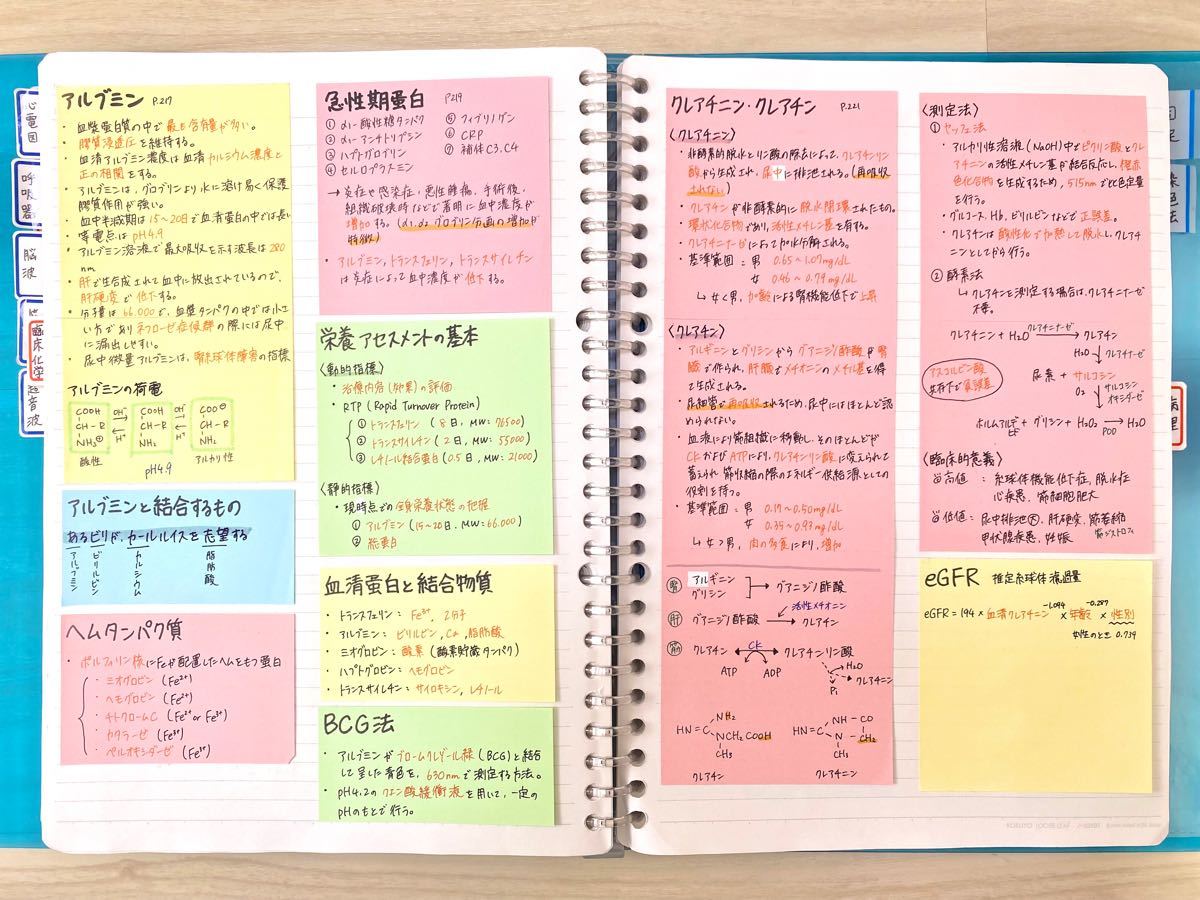 心電図
呼吸器
脳波
臨床化学
超音波
アルブミン P.217
・血漿蛋白質の中で最も含有量が多い。
・膠質浸透圧を維持する。
・血清アルブミン濃度は血清カルシウム濃度と
正の相関をする。
・アルブミンは、グロブリンより水に溶け易く保護
膠質作用が強い。
・血中半減期は15〜20日で血清蛋白の中では長い
・等電点はpH4.9
・アルブミン溶液で最大吸収を示す波長は280
nm
・肝で生合成されて血中に放出されているので、
肝硬変で低下する。
・分子量は66,000で、血漿タンパクの中では小さ
い方でありネフローゼ症候群の際には尿中
に漏出しやすい。
・尿中微量アルブミンは、腎糸球体障害の指標
アルブミンの荷電
COOH OH⁻ COOH OH⁻ COO⊖
CH-R ⇄ CH-R ⇄ CH-R
NH₃⊕ H⁺ NH₂ H⁺ NH₂
酸性 アルカリ性
pH4.9
アルブミンと結合するもの
あるビリが、カールルイスを志望する
アルブミン
ビリルビン
カルシウム
脂肪酸
ヘムタンパク質
・ポルフィリン核にFeが配置したヘムをもつ蛋白
・ミオグロビン (Fe²⁺)
・ヘモグロビン (Fe²⁺)
・チトクロームC (Fe²⁺or Fe³⁺)
・カタラーゼ (Fe³⁺)
・ペルオキシダーゼ (Fe³⁺)
急性期蛋白 P.219
① α₁-酸性糖タンパク ⑤ フィブリノゲン
② α₁-アンチトリプシン ⑥ CRP
③ ハプトグロブリン ⑦ 補体C3,C4
④ セルロプラスミン
→ 炎症や感染症、悪性腫瘍、手術後、
組織破壊時などで著明に血中濃度が
増加する。(α₁,α₂グロブリン分画の増加が
特徴)
・アルブミン,トランスフェリン,トランスサイレチン
は炎症によって血中濃度が低下する。
栄養アセスメントの基本
〈動的指標〉
・治療内容(効果)の評価
・RTP (Rapid Turnover Protein)
① トランスフェリン (8日, MW:76500)
② トランスサイレチン (2日, MW:55000)
③ レチノール結合蛋白 (0.5日, MW:21000)
〈静的指標〉
・現時点での全身栄養状態の把握
① アルブミン (15〜20日, MW:66,000)
② 総蛋白
血清蛋白と結合物質
・トランスフェリン: Fe³⁺, 2分子
・アルブミン: ビリルビン, Ca, 脂肪酸
・ミオグロビン: 酸素 (酸素貯蔵タンパク)
・ハプトグロビン: ヘモグロビン
・トランスサイレチン: サイロキシン, レチノール
BCG法
・アルブミンがブロームクレゾール緑(BCG)と結合
して呈した青色を、630nmで測定する方法。
・pH4.2のクエン酸緩衝液を用いて、一定の
pHのもとで行う。
クレアチニン・クレアチン P.221
〈クレアチニン〉
・非酵素的脱水とリン酸の除去によって、クレアチンリン
酸から生成され、尿中に排泄される。(再吸収
されない)
・クレアチンが非酵素的に脱水閉環されたもの。
・環状化合物であり、活性メチレン基を有する。
・クレアチニナーゼによって加水分解される。
・基準範囲: 男 0.65〜1.07mg/dL
女 0.46〜0.79mg/dL
↳ 女<男, 加齢による腎機能低下で上昇
〈クレアチン〉
・アルギニンとグリシンからグアニジノ酢酸が腎
臓で作られ、肝臓でメチオニンのメチル基を得
て生成される。
・尿細管で再吸収されるため、尿中にはほとんど認
められない。
・血液により筋組織に移動し、そのほとんどが
CKおよびATPにより、クレアチンリン酸に変えられて
蓄えられ筋収縮の際のエネルギー供給源としての
役割を持つ。
・基準範囲: 男 0.19〜0.50mg/dL
女 0.35〜0.93mg/dL
↳ 女>男, 肉の多食により、増加
腎 アルギニン
グリシン → グアニジノ酢酸
活性メチオニン
肝 グアニジノ酢酸 → クレアチン
筋 クレアチン CK クレアチンリン酸
ATP ADP H₂O
Pi クレアチニン
NH₂ NH-CO
HN=C HN=C
NCH₂COOH N-CH₂
CH₃ CH₃
クレアチン クレアチニン
〈測定法〉
① ヤッフェ法
・アルカリ性溶液(NaOH)中でピクリン酸とクレ
アチニンの活性メチレン基が結合反応し、橙赤
色化合物を生成するため、515nmで比色定量
を行う。
・グルコース、Hb、ビリルビンなどで正誤差。
・クレアチンは酸性化で加熱して脱水し、クレアチ
ニンとしてから行う。
② 酵素法
↳ クレアチンを測定する場合は、クレアチニナーゼ
不要。
クレアチニン + H₂O クレアチニナーゼ → クレアチン
H₂O クレアチナーゼ
アスコルビン酸
共存下で負誤差
尿素 + サルコシン
O₂ サルコシン
オキシダーゼ
ホルムアルデヒド + グリシン + H₂O₂ POD → H₂O
〈臨床的意義〉
高値: 糸球体機能低下症、脱水症
心疾患、筋細胞肥大
低値: 尿中排泄大、肝硬変、筋萎縮
甲状腺疾患、妊娠 筋ジストロフィ
eGFR 推定糸球体濾過量
eGFR = 194 × 血清クレアチニン⁻¹·⁰⁹⁴ × 年齢⁻⁰·²⁸⁷ × 性別
女性のとき 0.739
病理
KOKUYO LOOSE-LEAF